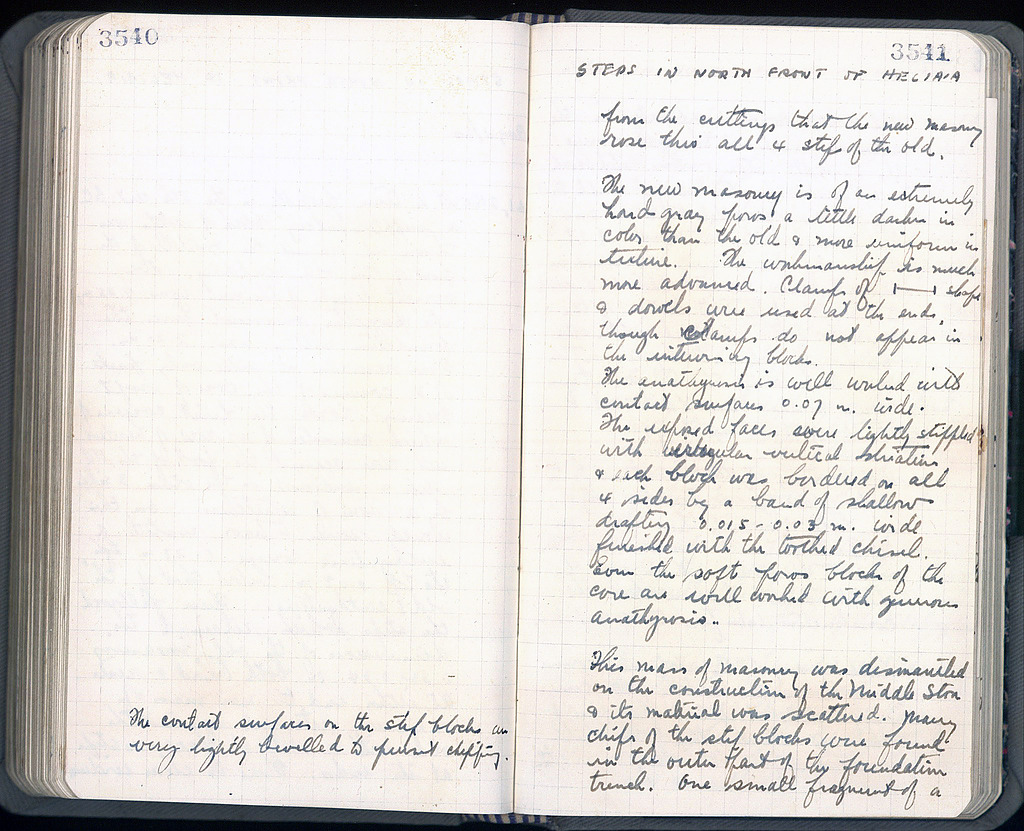 3540
The contact surfaces on the step blocks are
very lightly bevelled to prevent chipping.
3541
STEPS IN NORTH FRONT OF HELIAIA
from the cuttings that the new masonry
rose this all 4 steps of the old.
The new masonry is of an extremely
hard gray poros a little darker in
color than the old & more uniform in
texture. The workmanship is much
more advanced. Clamps of shape
& dowels were used at the ends,
though clamps do not appear in
the intervening blocks.
The anathyrosis is well worked with
contact surfaces 0.07 m. wide.
The exposed faces were lightly stippled
with vertical striations
& each block was bordered on all
4 sides by a band of shallow
drafting 0.015-0.03 m. wide
finished with the toothed chisel.
Even the soft poros blocks of the
core are well worked with generous
anathyrosis..
This mass of masonry was dismantled
on the construction of the Middle Stoa
& its material was scattered. Many
chips of the step blocks were found
in the outer part of the foundation
trench. One small fragment of a